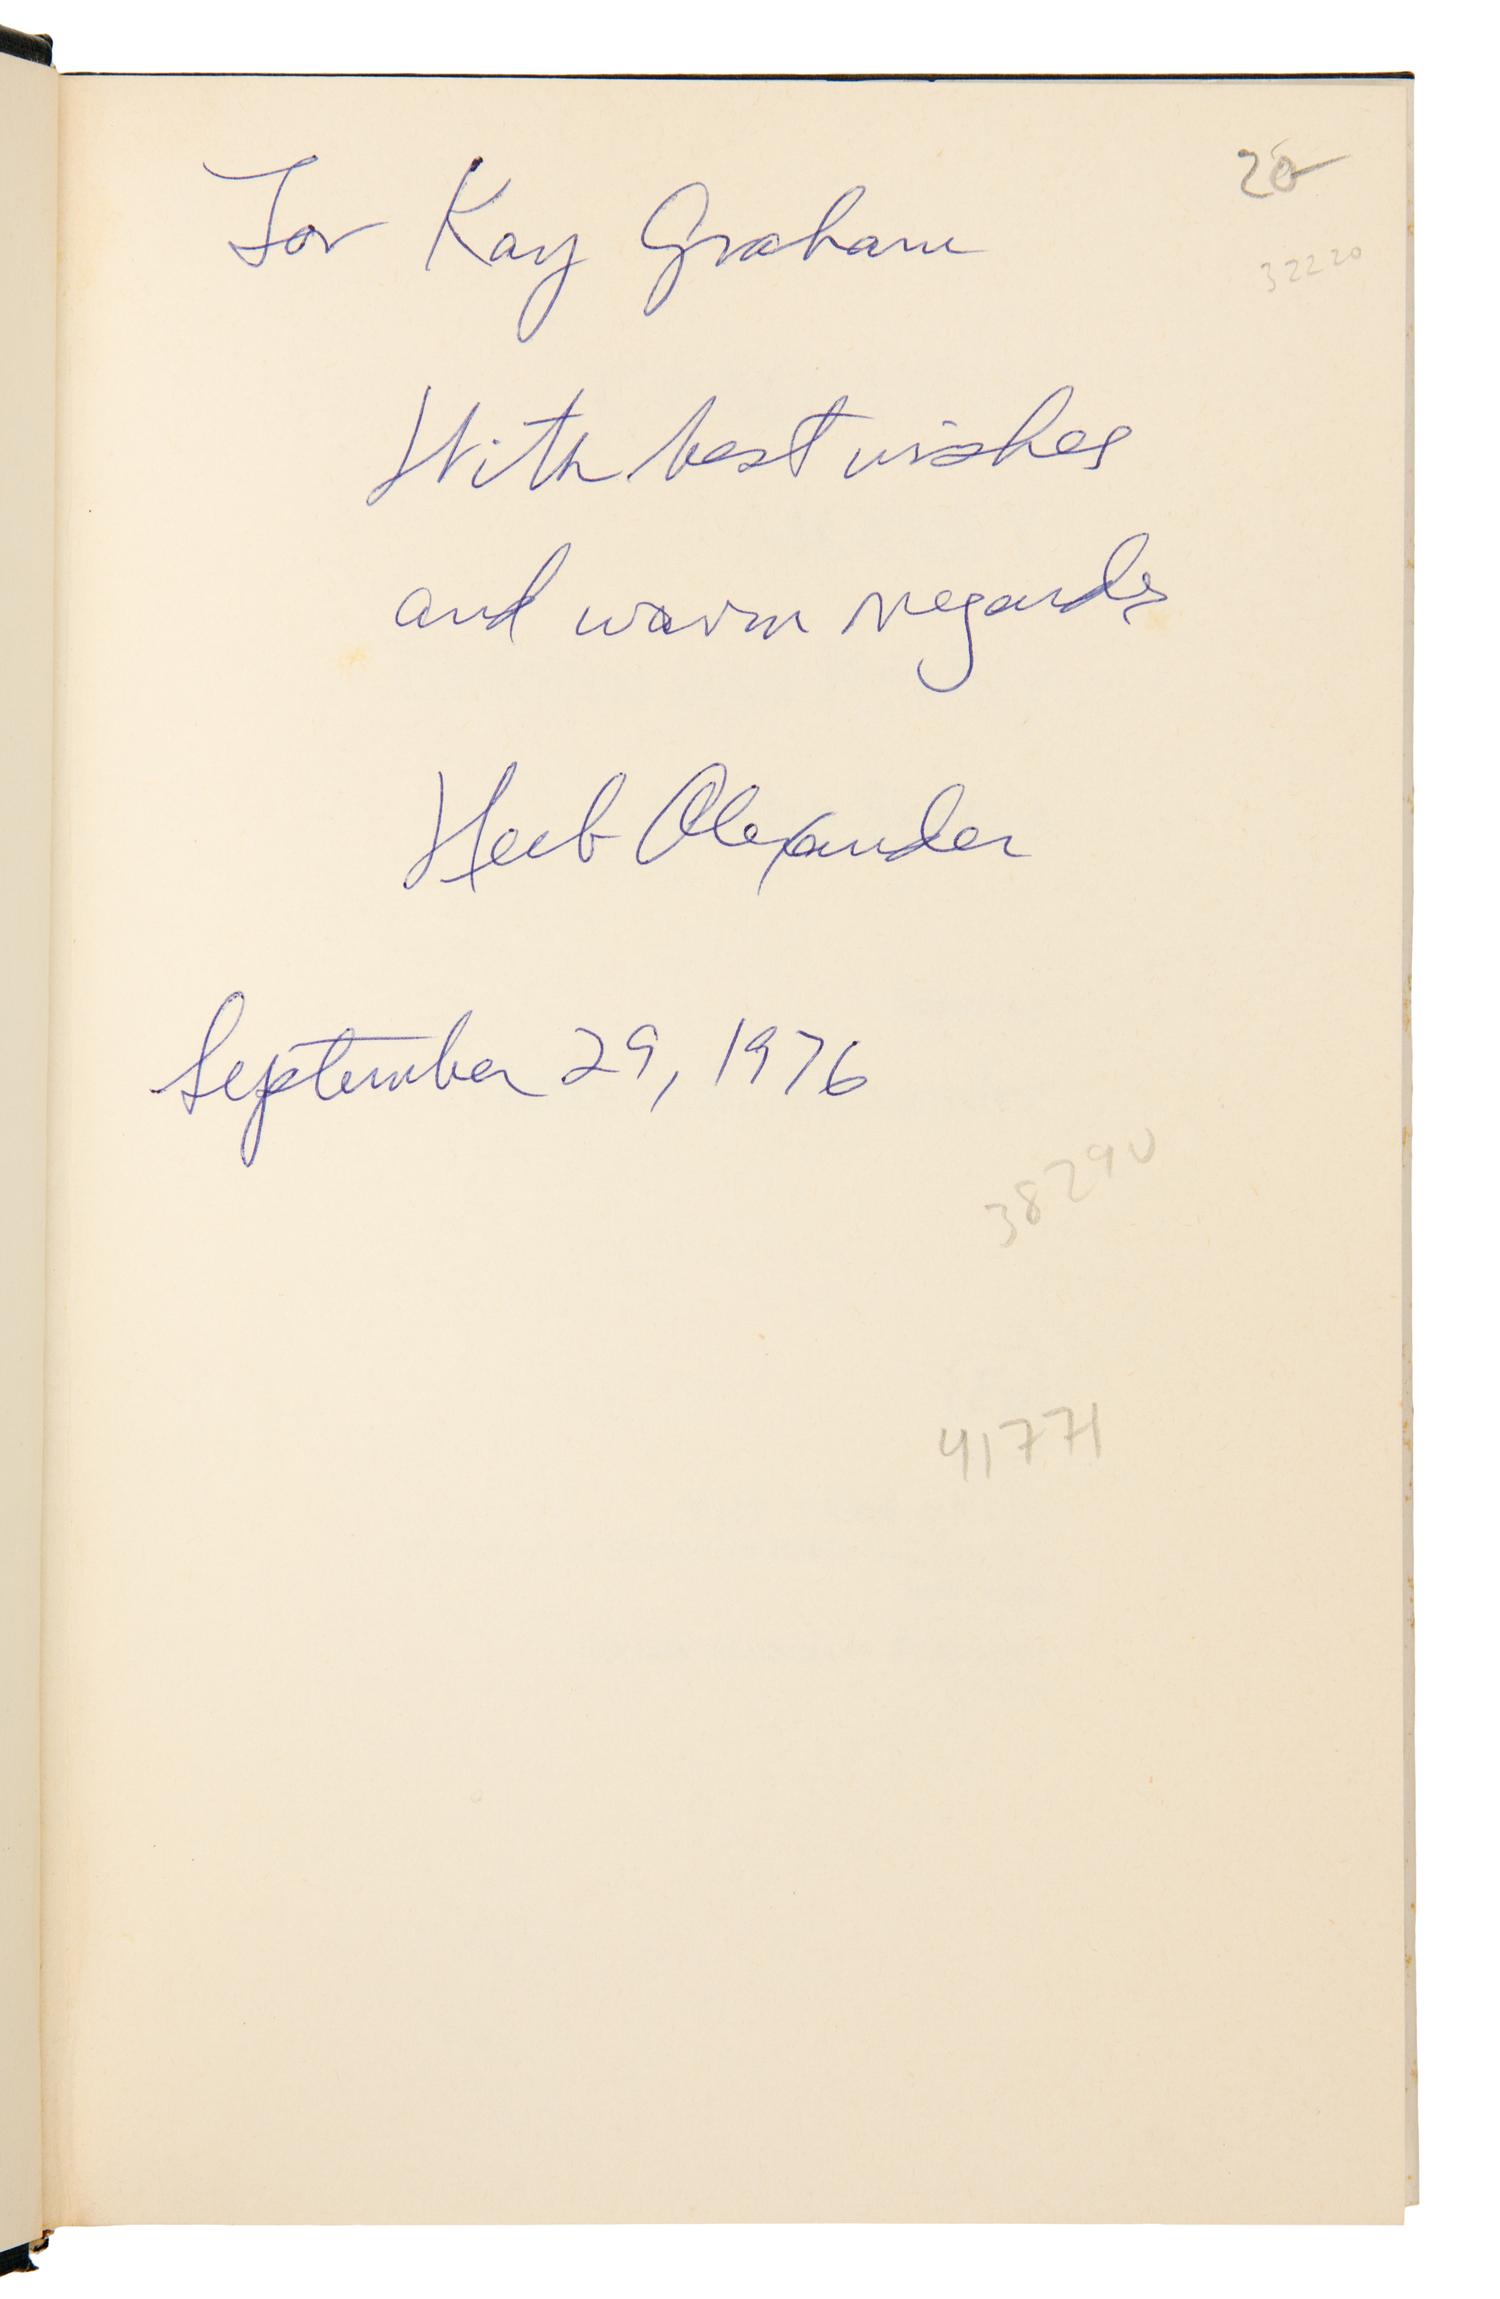 20
For Kay Graham
32220
With best wishes
and warm regards
Herb Alexander
September 29, 1976
38290
41771